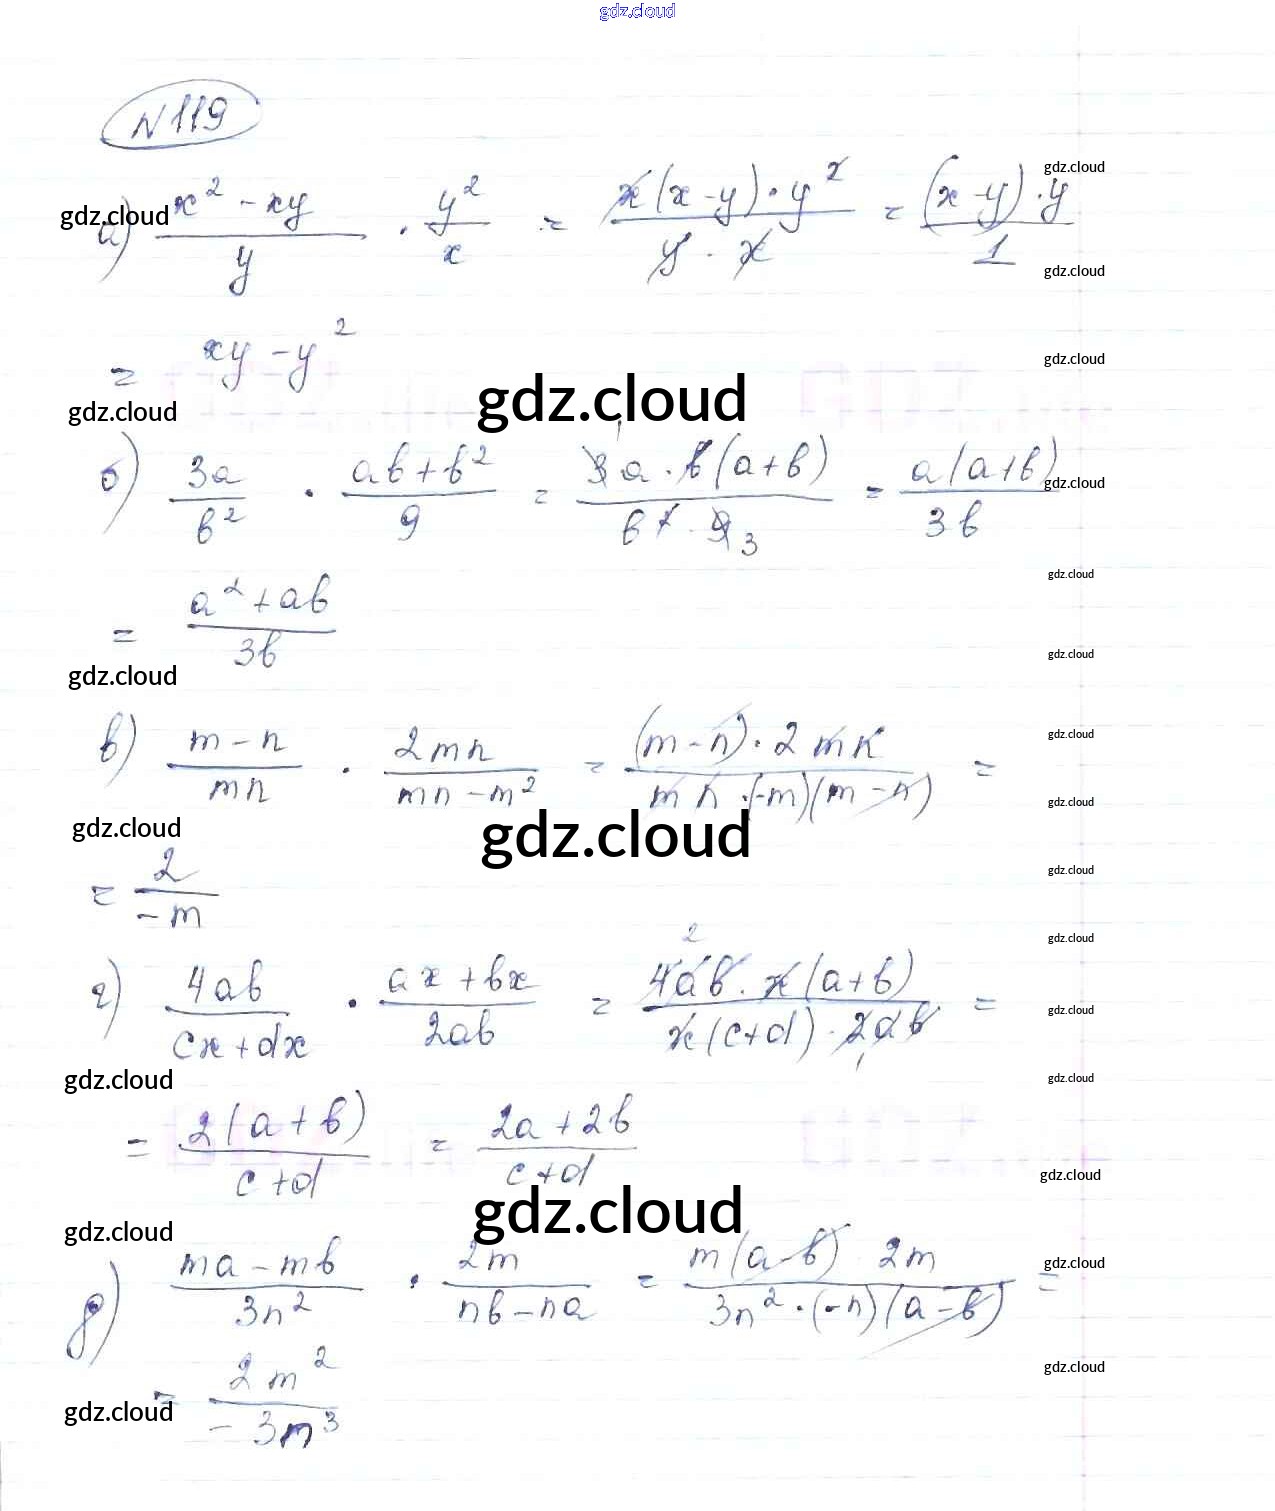 gdz.cloud
N119
gdz.cloud
gdz.cloud
а) (x² - xy)/y · y²/x = (x(x-y)·y²)/(y·x) = ((x-y)·y)/1
gdz.cloud
= xy - y²
gdz.cloud
gdz.cloud
gdz.cloud
б) 3a/b² · (ab+b²)/9 = (3a·b(a+b))/(b²·9) 1 3 = (a(a+b))/(3b)
gdz.cloud
gdz.cloud
= (a²+ab)/(3b)
gdz.cloud
gdz.cloud
в) (m-n)/(mn) · (2mn)/(mn-m²) = ((m-n)·2mn)/(mn·(-m)(m-n)) =
gdz.cloud
gdz.cloud
gdz.cloud
gdz.cloud
gdz.cloud
= 2/(-m)
gdz.cloud
г) (4ab)/(cx+dx) · (ax+bx)/(2ab) = (4ab·x(a+b))/(x(c+d)·2ab) 2 1 =
gdz.cloud
gdz.cloud
gdz.cloud
= (2(a+b))/(c+d) = (2a+2b)/(c+d)
gdz.cloud
gdz.cloud
gdz.cloud
д) (ma-mb)/(3n²) · (2m)/(nb-na) = (m(a-b) 2m)/(3n²·(-n)(a-b)) =
gdz.cloud
gdz.cloud
= (2m²)/(-3m³)
gdz.cloud